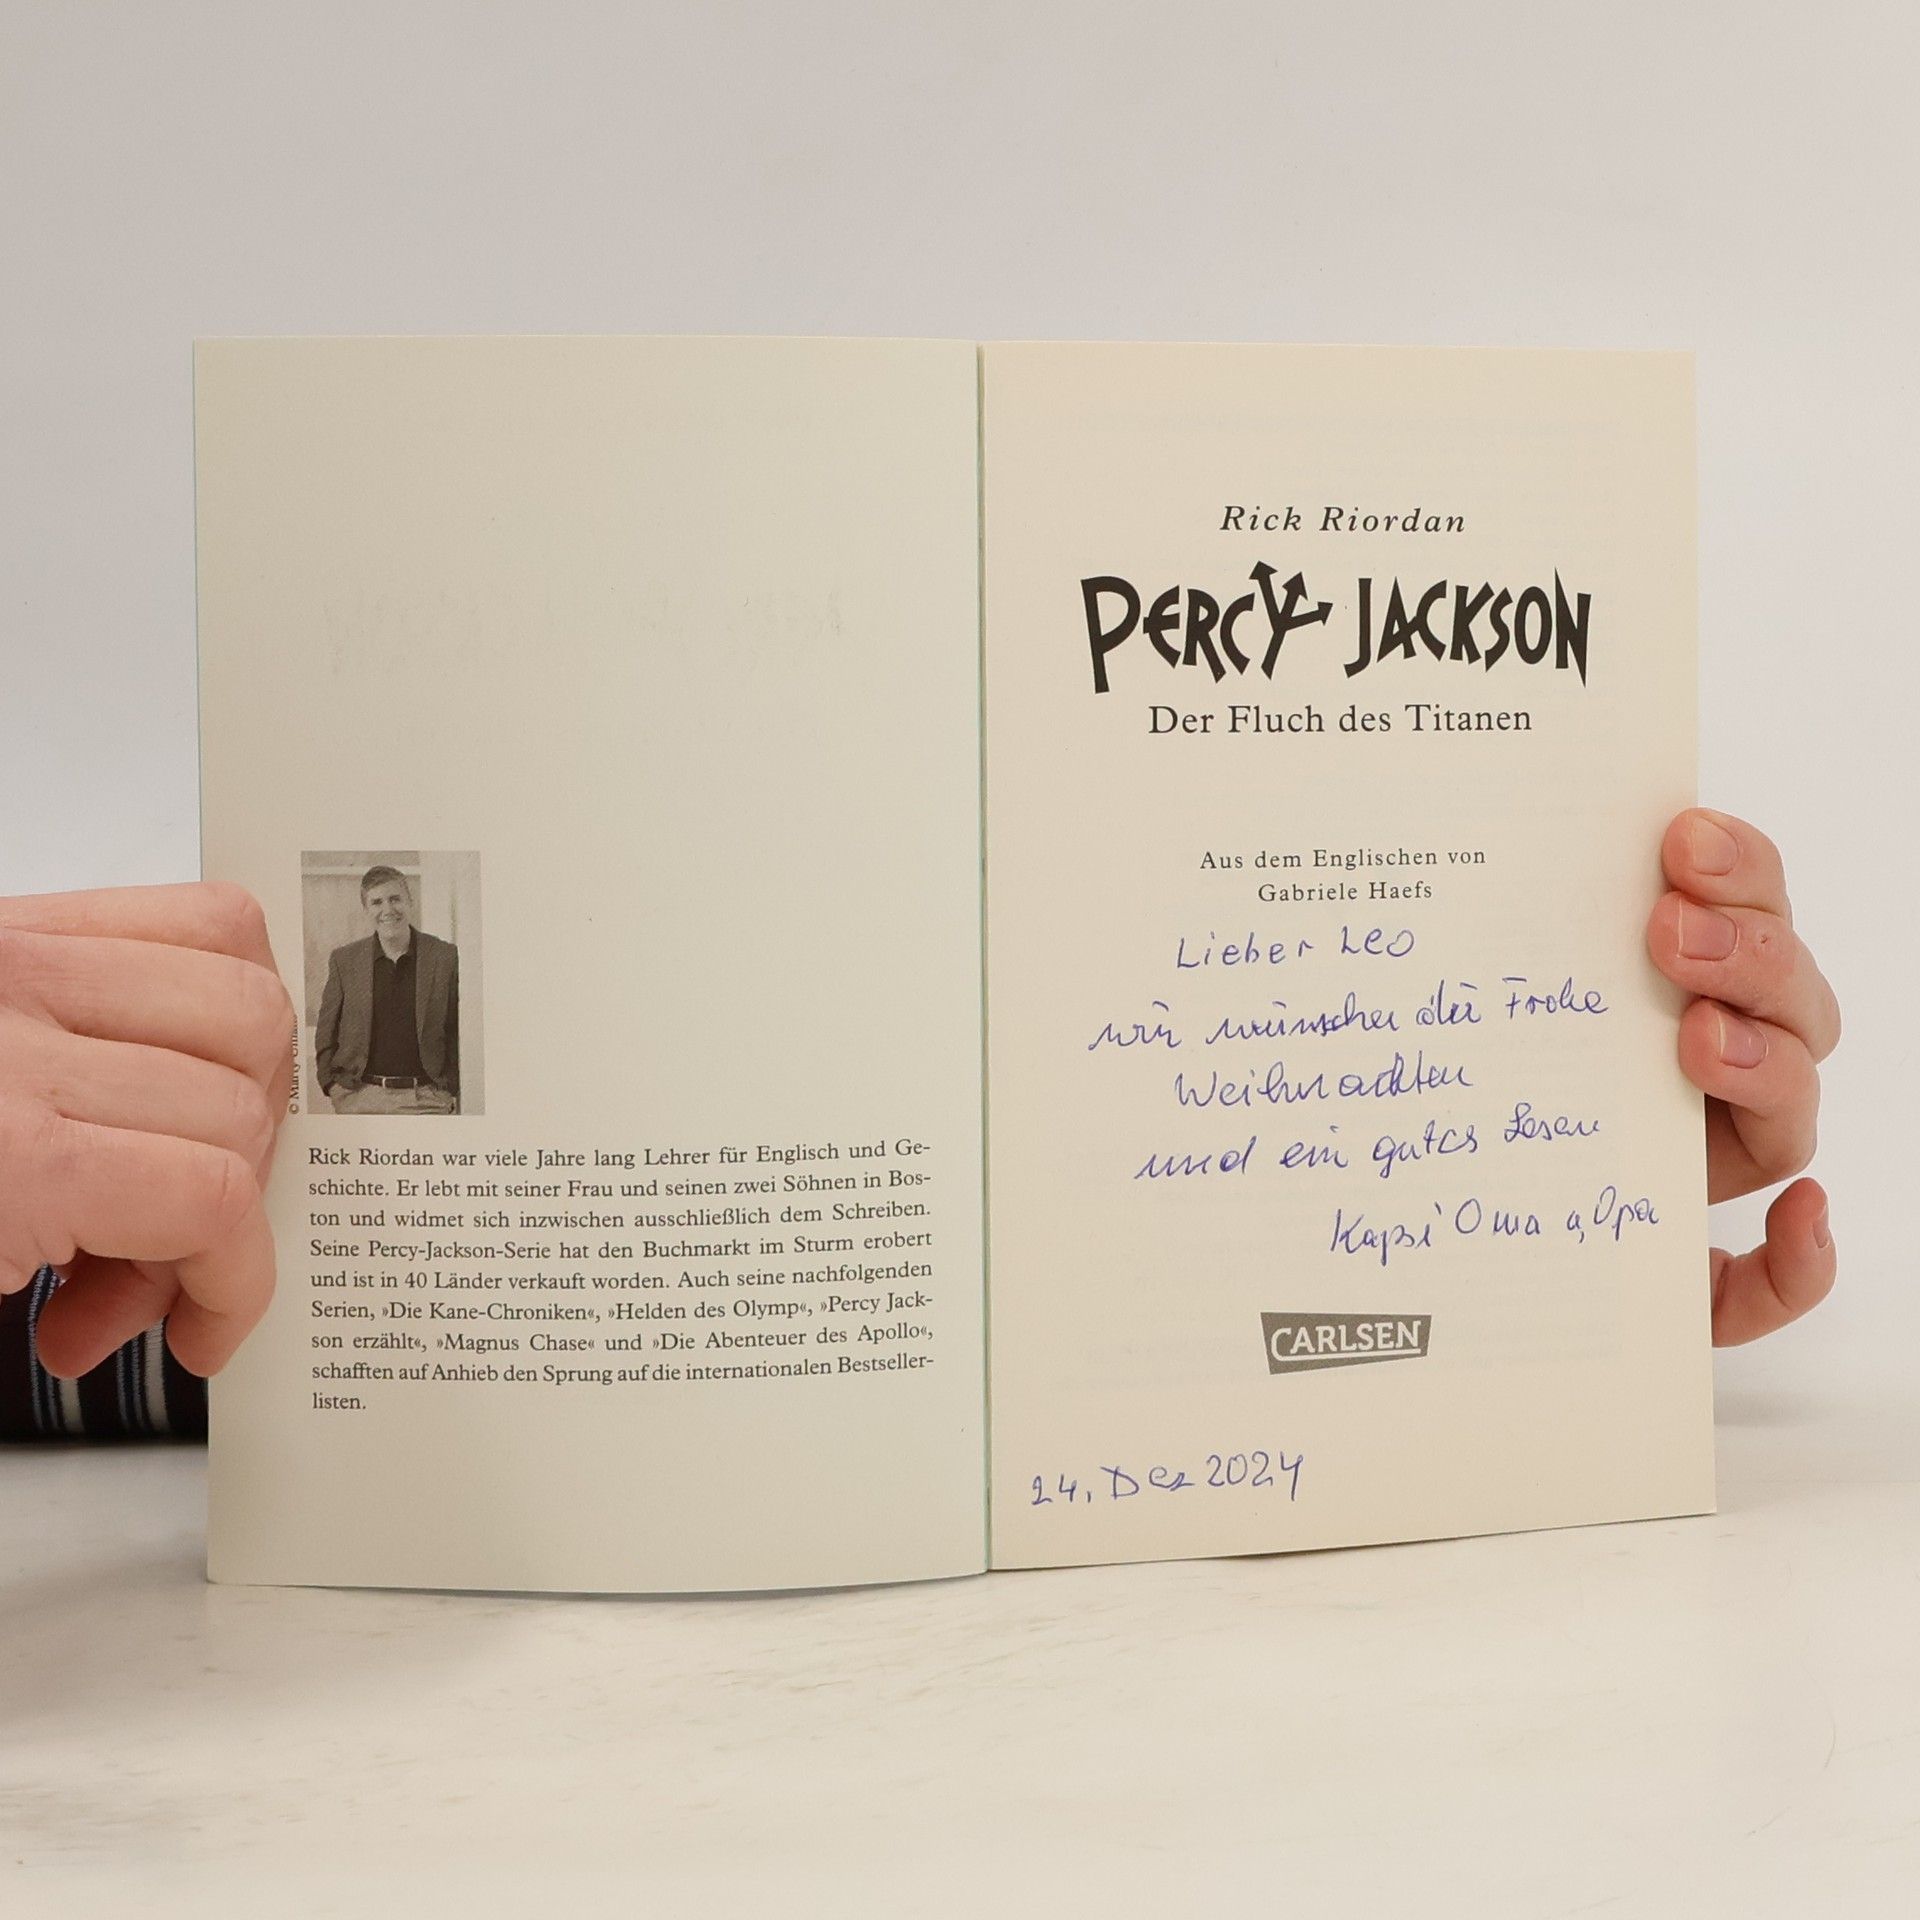 Rick Riordan war viele Jahre lang Lehrer für Englisch und Ge-
schichte. Er lebt mit seiner Frau und seinen zwei Söhnen in Bos-
ton und widmet sich inzwischen ausschließlich dem Schreiben.
Seine Percy-Jackson-Serie hat den Buchmarkt im Sturm erobert
und ist in 40 Länder verkauft worden. Auch seine nachfolgenden
Serien, »Die Kane-Chroniken«, »Helden des Olymp«, »Percy Jack-
son erzählt«, »Magnus Chase« und »Die Abenteuer des Apollo«,
schafften auf Anhieb den Sprung auf die internationalen Bestseller-
listen.
Rick Riordan
PERCY JACKSON
Der Fluch des Titanen
Aus dem Englischen von
Gabriele Haefs
Lieber Leo
wir wünschen dir Frohe
Weihnachten
und ein gutes Lesen
Oma u, Opa
CARLSEN
24. Dez 2024